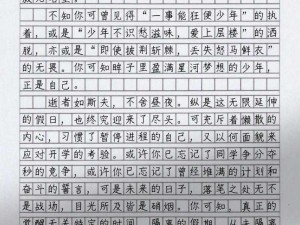 不知你可曾见得“一事能狂便少年”的执
着，或是“少年不识愁滋味，爱上层楼”的洒
脱，亦或是“即使披荆斩棘，丢失怒马鲜衣”
的无畏。你可知眸子里盈满星河梦想的少年，
正是自己。
逝者如斯夫，不舍昼夜。纵是这无限延伸
的假日，也终究迎来了尽头。可充斥着懒散的
内心，习惯了暂停进程的自己，又以何面貌来
应对开学的考验。或许你已忘记了同学争分夺
秒的竞争，或许你已忘记了曾经堆满的计划和
奋斗的誓言，可是未来的日子，落笔之处无不
是战场，目光所及皆是硝烟，你可知，真正的
觉醒无关特定的时间，隔离的假期，从未隔离